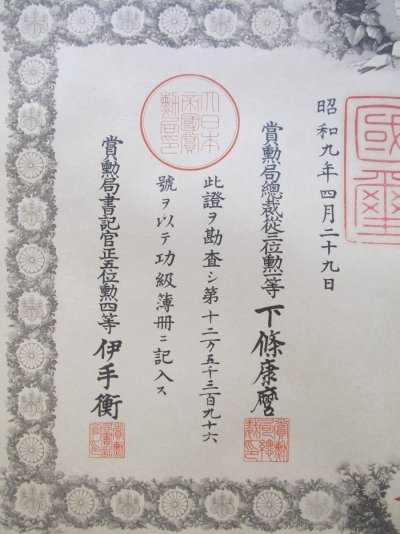 昭和九年四月二十九日
國璽
賞勲局總裁從三位勲一等 下條康麿
賞勲局總裁之印
此證ヲ勘査シ第十二万五千三百九十六
號ヲ以テ功級簿册ニ記入ス
大日本帝國賞勲局之印
賞勲局書記官正五位勲四等 伊手衡